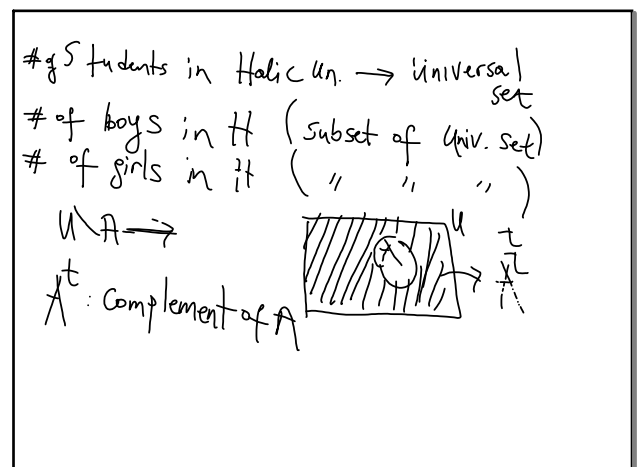 # of Students in Halic Un. → Universal set
# of boys in H (subset of Univ. set)
# of girls in it ( " " " )
U\A →
U
A
t
A^t
A^t : Complement of A